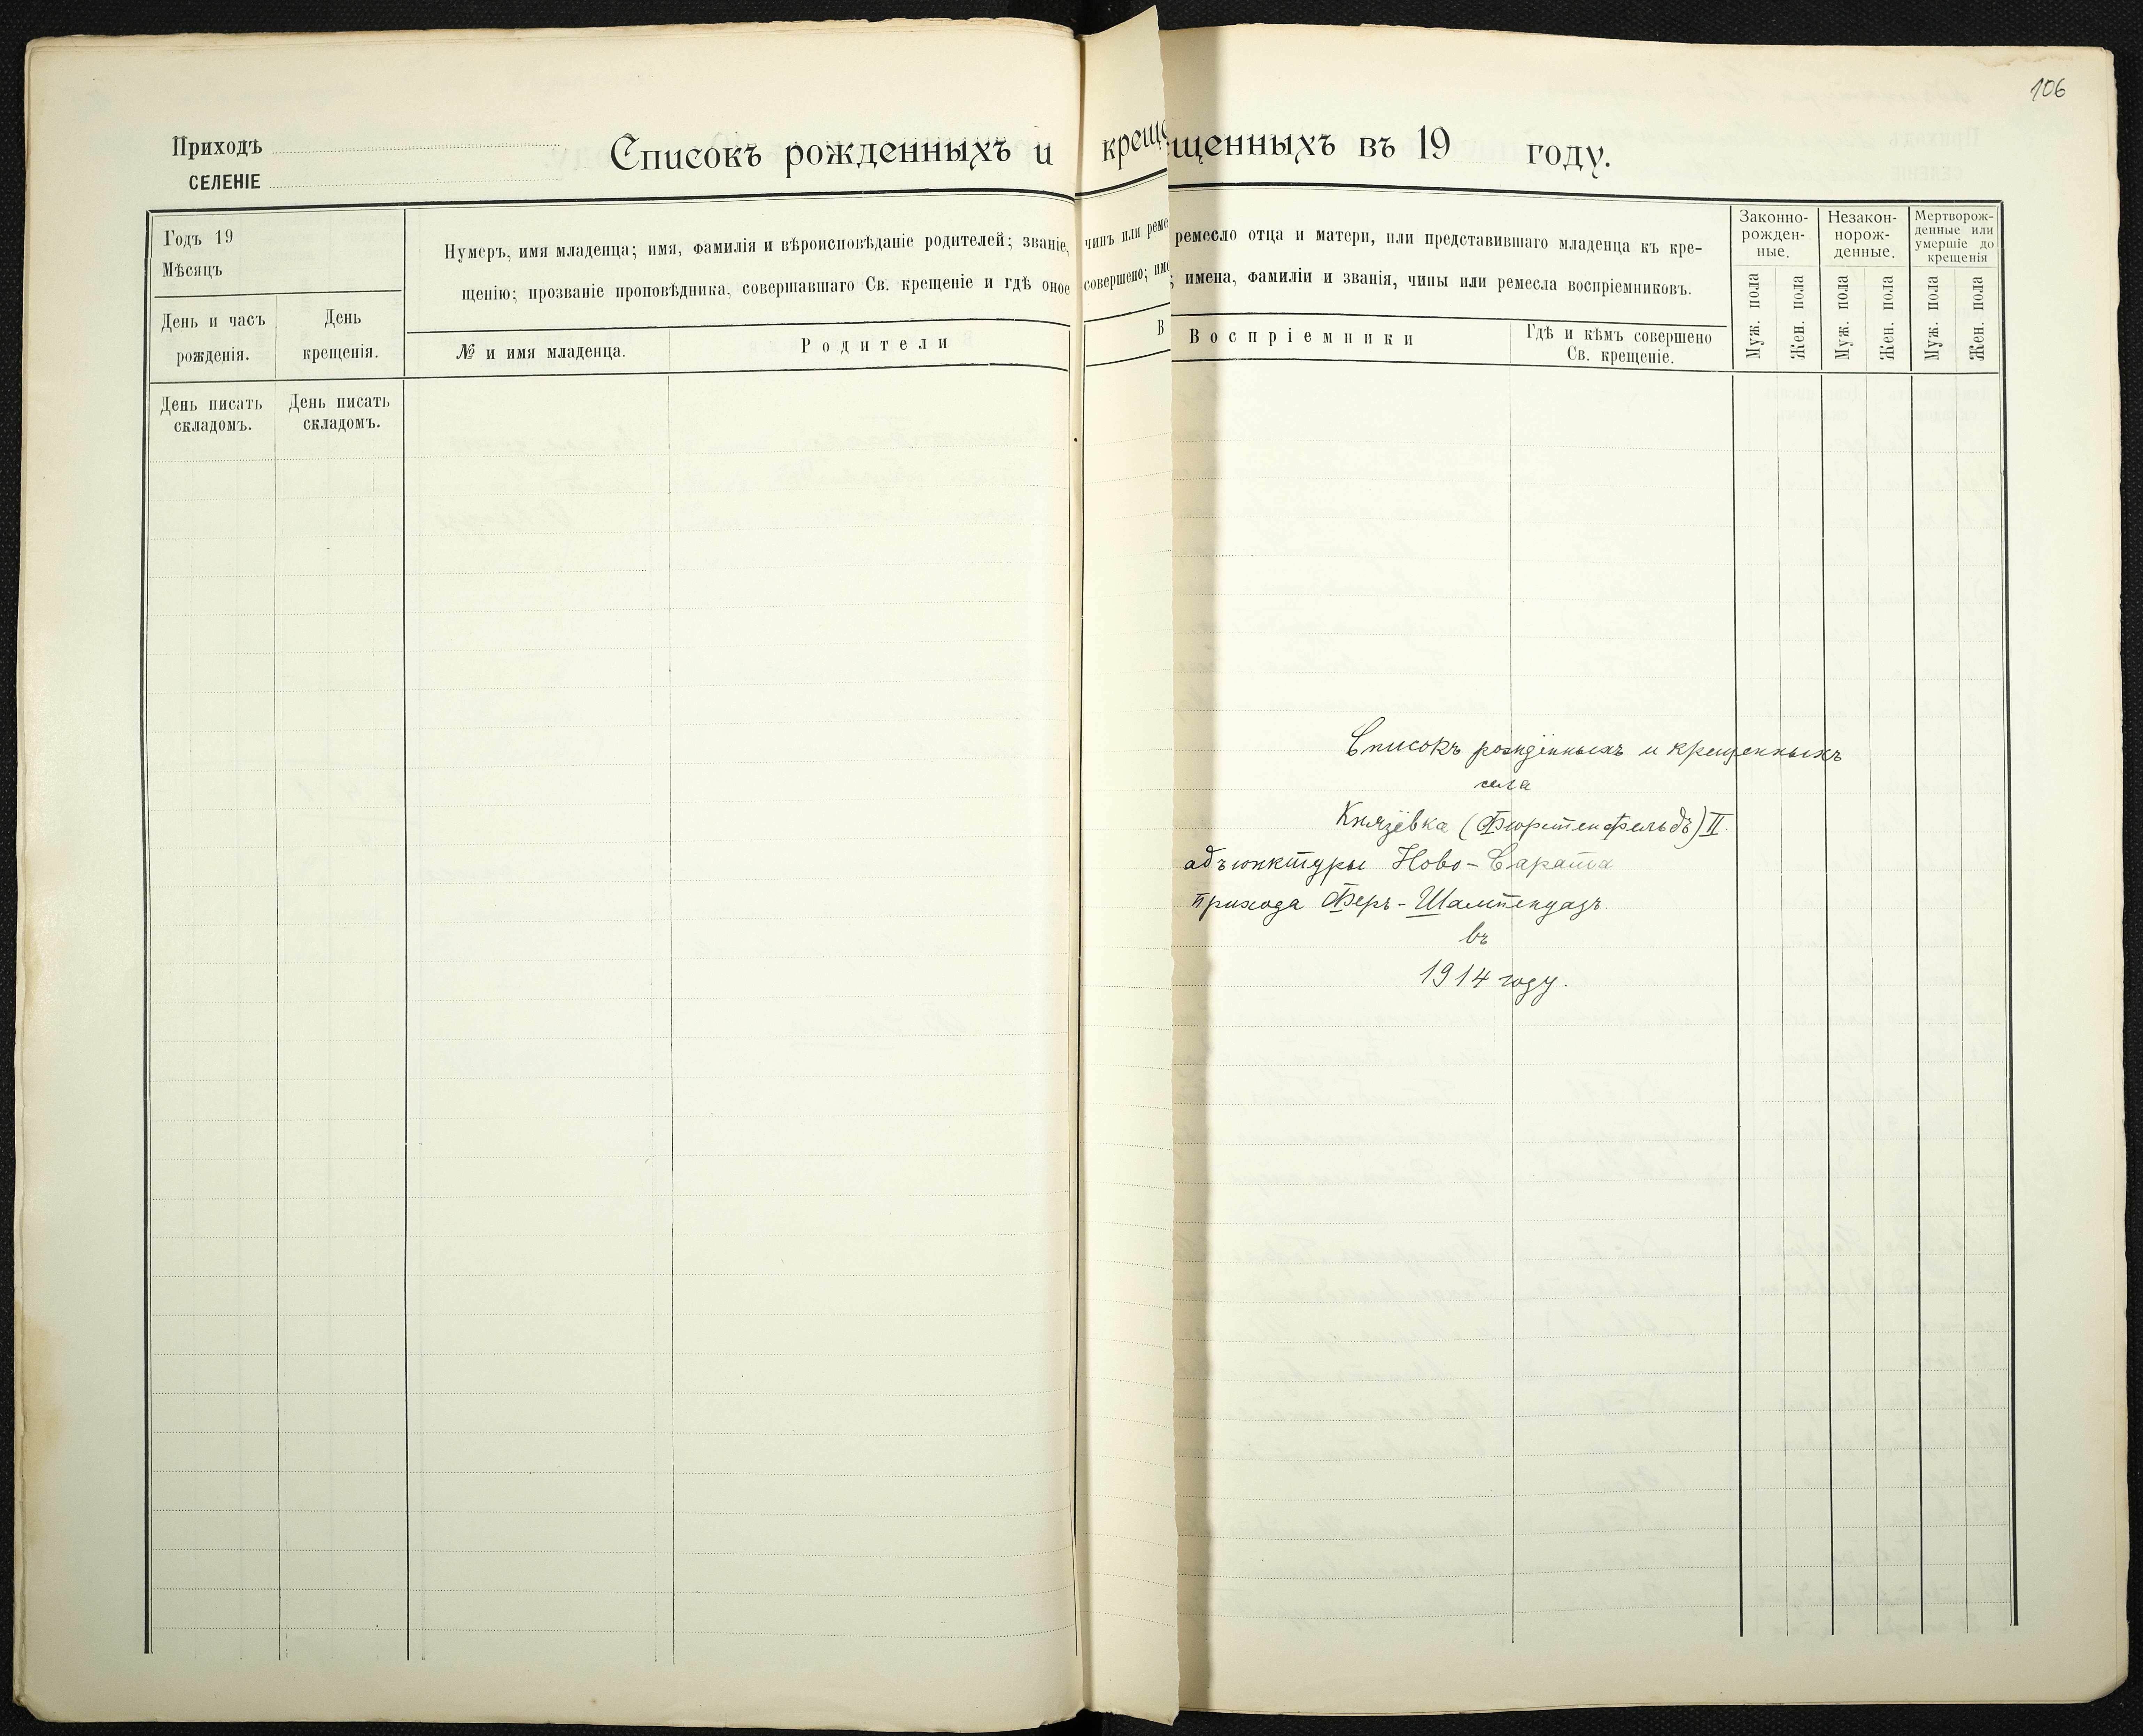 106
Приходъ
СЕЛЕНІЕ
Списокъ рожденныхъ и креще
щенныхъ въ 19 году.
Годъ 19
Мѣсяцъ
День и часъ рожденія.
День крещенія.
Нумеръ, имя младенца; имя, фамилія и вѣроисповѣданіе родителей; званіе,
щенію; прозваніе проповѣдника, совершавшаго Св. крещеніе и гдѣ оное
№ и имя младенца.
Родители
чинъ или реме
совершено; име
В
ремесло отца и матери, или представившаго младенца къ кре-
; имена, фамиліи и званія, чины или ремесла воспріемниковъ.
Воспріемники
Гдѣ и кѣмъ совершено
Св. крещеніе.
Законно-
рожден-
ные.
Незакон-
норож-
денные.
Мертворож-
денные или
умершіе до
крещенія
Муж. пола
Жен. пола
Муж. пола
Жен. пола
Муж. пола
Жен. пола
День писать
складомъ.
День писать
складомъ.
Списокъ рождённыхъ и крещенныхъ
села
Князёвка (Фюрстенфельдъ) II.
адъюнктуры Ново-Сарата
прихода Феръ-Шампенуазъ.
въ
1914 году.